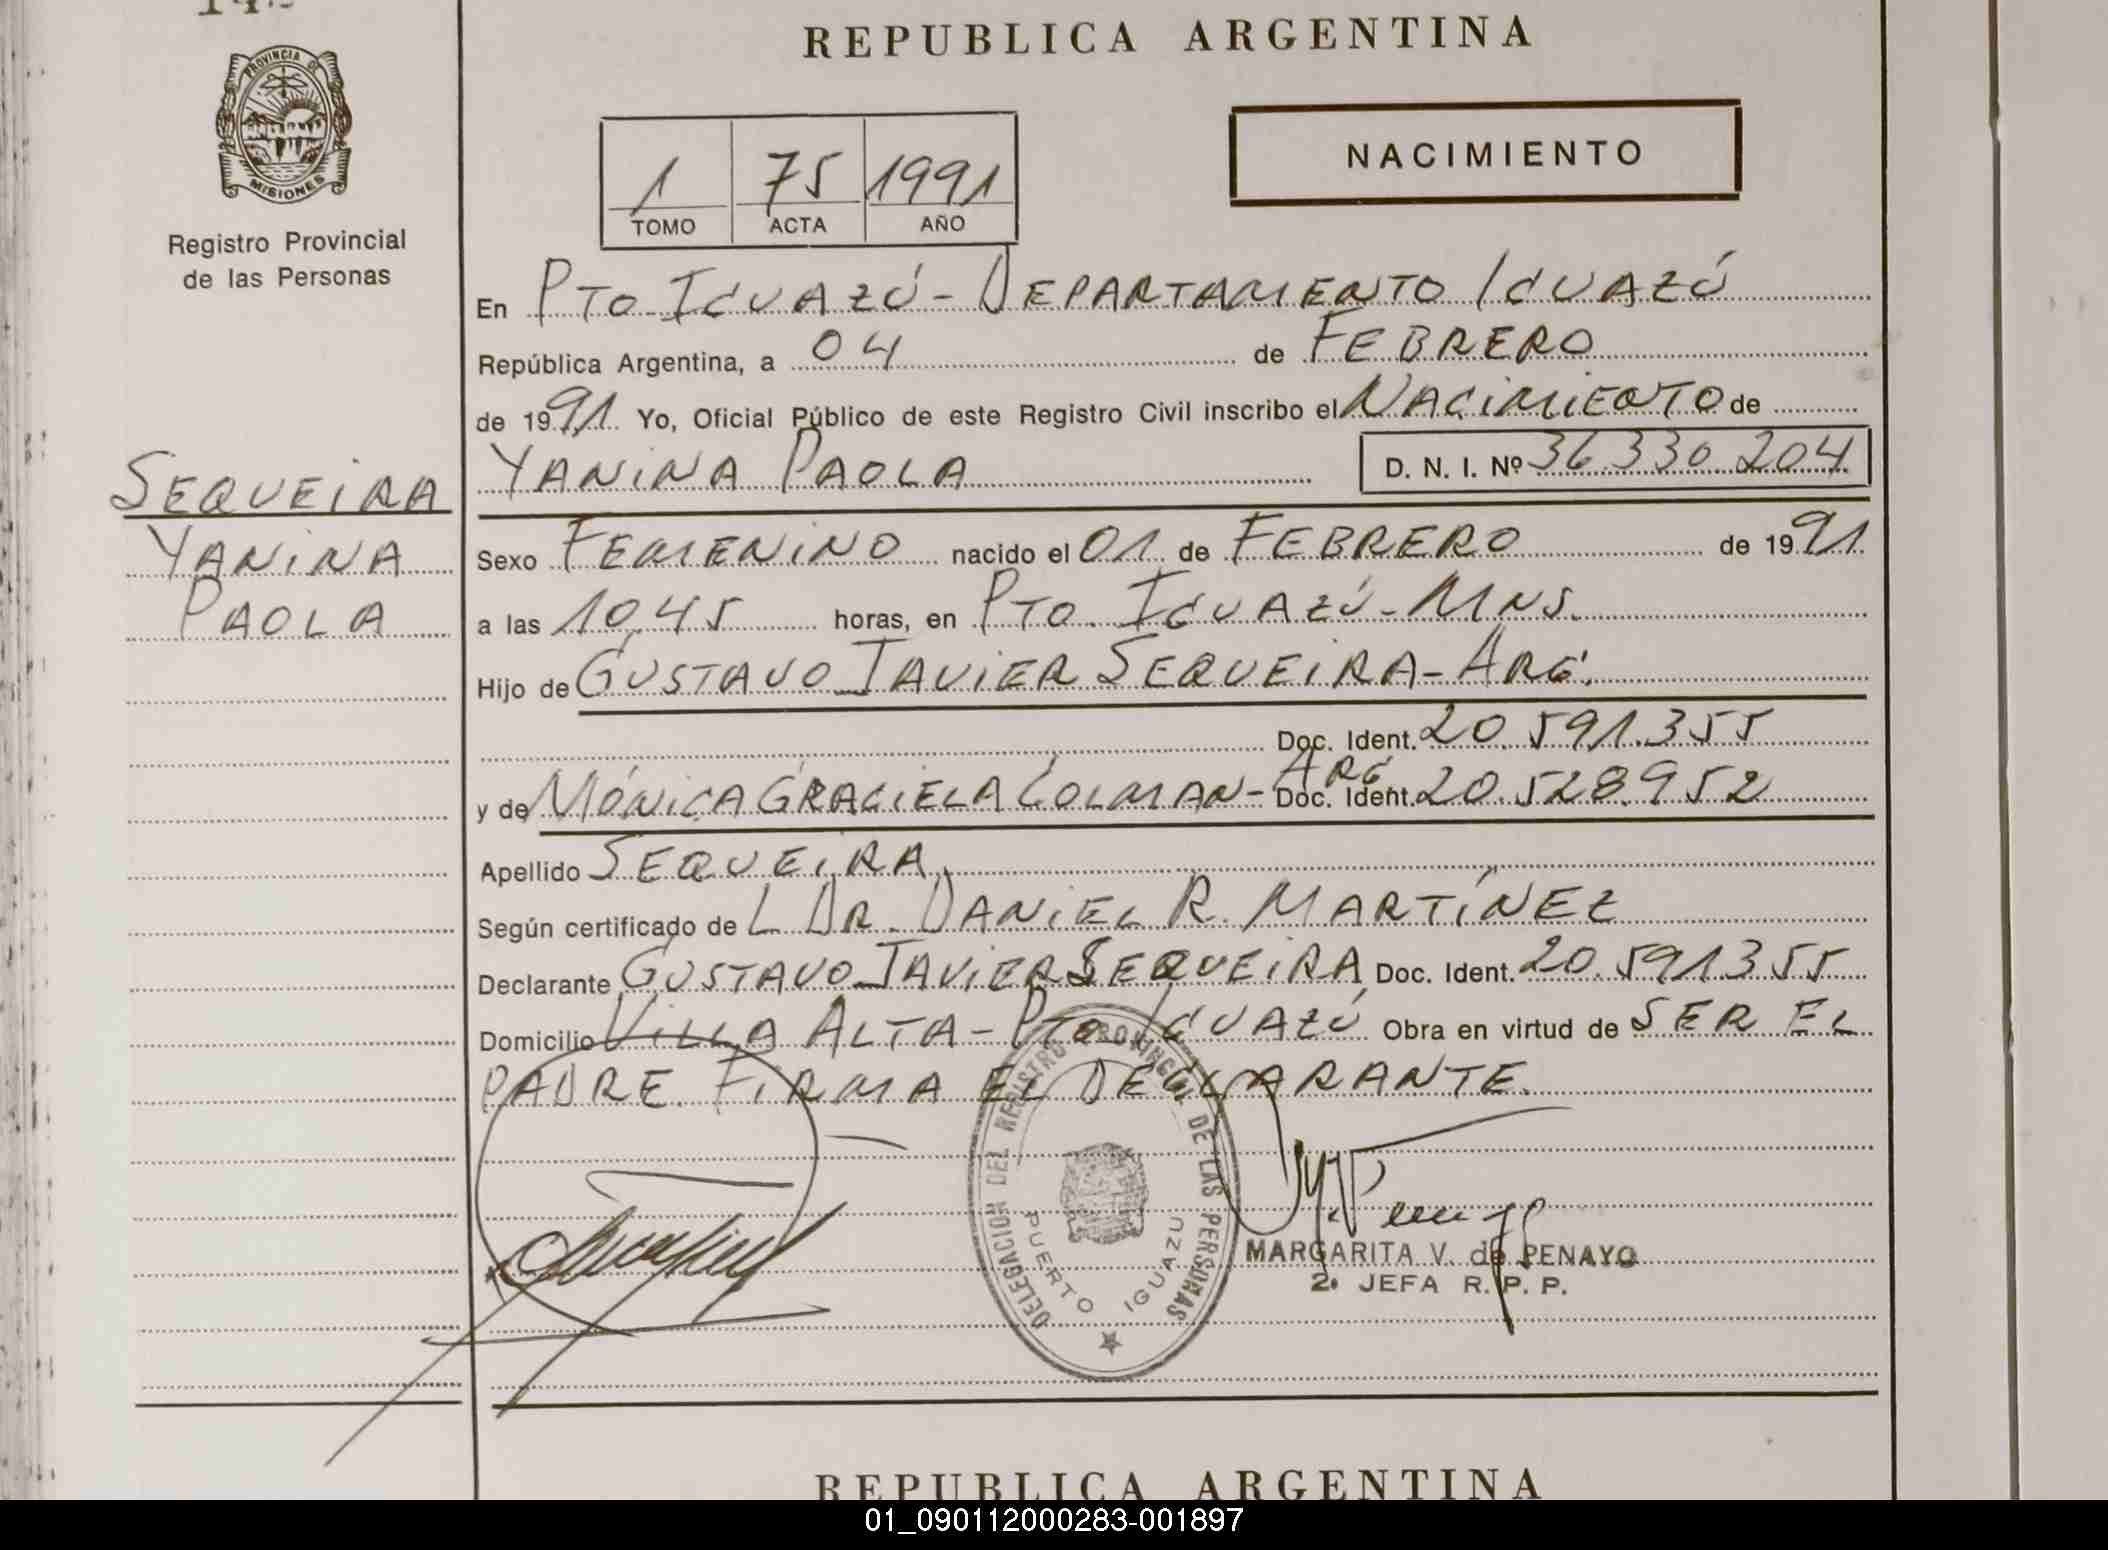 REPUBLICA ARGENTINA
PROVINCIA DE
MISIONES
Registro Provincial
de las Personas
NACIMIENTO
1 75 1991
TOMO ACTA AÑO
En PTO IGUAZÚ - DEPARTAMENTO IGUAZÚ
República Argentina, a 04 de FEBRERO
de 1991. Yo, Oficial Público de este Registro Civil inscribo el NACIMIENTO de
YANINA PAOLA D. N. I. Nº 36.330.204
SEQUEIRA
YANINA
PAOLA
Sexo FEMENINO nacido el 01 de FEBRERO de 1991
a las 10,45 horas, en PTO. IGUAZÚ - MNS.
Hijo de GUSTAVO JAVIER SEQUEIRA - ARG.
Doc. Ident. 20.591.355
y de MÓNICA GRACIELA COLMAN - ARG Doc. Ident. 20.528.952
Apellido SEQUEIRA
Según certificado de L DR. DANIEL R. MARTÍNEZ
Declarante GUSTAVO JAVIER SEQUEIRA Doc. Ident. 20.591355
Domicilio VILLA ALTA - PTO IGUAZÚ Obra en virtud de SER EL
PADRE. FIRMA EL DECLARANTE.
DELEGACION DEL REGISTRO PROVINCIAL DE LAS PERSONAS
PUERTO IGUAZU
MARGARITA V. de PENAYO
2º JEFA R. P. P.
REPUBLICA ARGENTINA
01_090112000283-001897